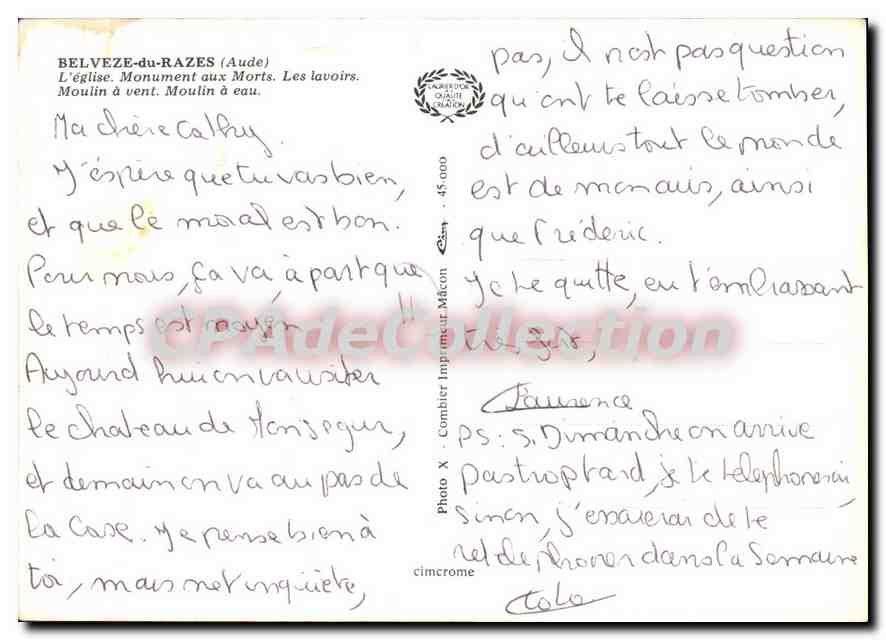 BELVEZE-du-RAZES (Aude)
L'église. Monument aux Morts. Les lavoirs.
Moulin à vent. Moulin à eau.
LAURIER D'OR
DE
QUALITÉ
DE
CRÉATION
Ma chère Cathy.
J'éspère que tu vas bien,
et que le moral est bon.
Pour nous, ça va, à part que
le temps est moyen !!
Aujourd'hui on va visiter
le chateau de Monsegur,
et demain on va au pas de
la Case. Je pense bien à
toi, mais net inquiète,
pas, il n'est pas question
qu'ont te laisse tomber,
d'ailleurs tout le monde
est de mon avis, ainsi
que Frédéric.
Je te quitte, en t'embrassant
très fort,
Laurence
PS: Si Dimanche on arrive
pas trop tard, je te telephonerai,
sinon, j'essaierai de te
retelephoner dans la Semaine
Lolo
Photo X . Combier Imprimeur Mâcon Cim . 45.000
cimcrome
CPAdeCollection